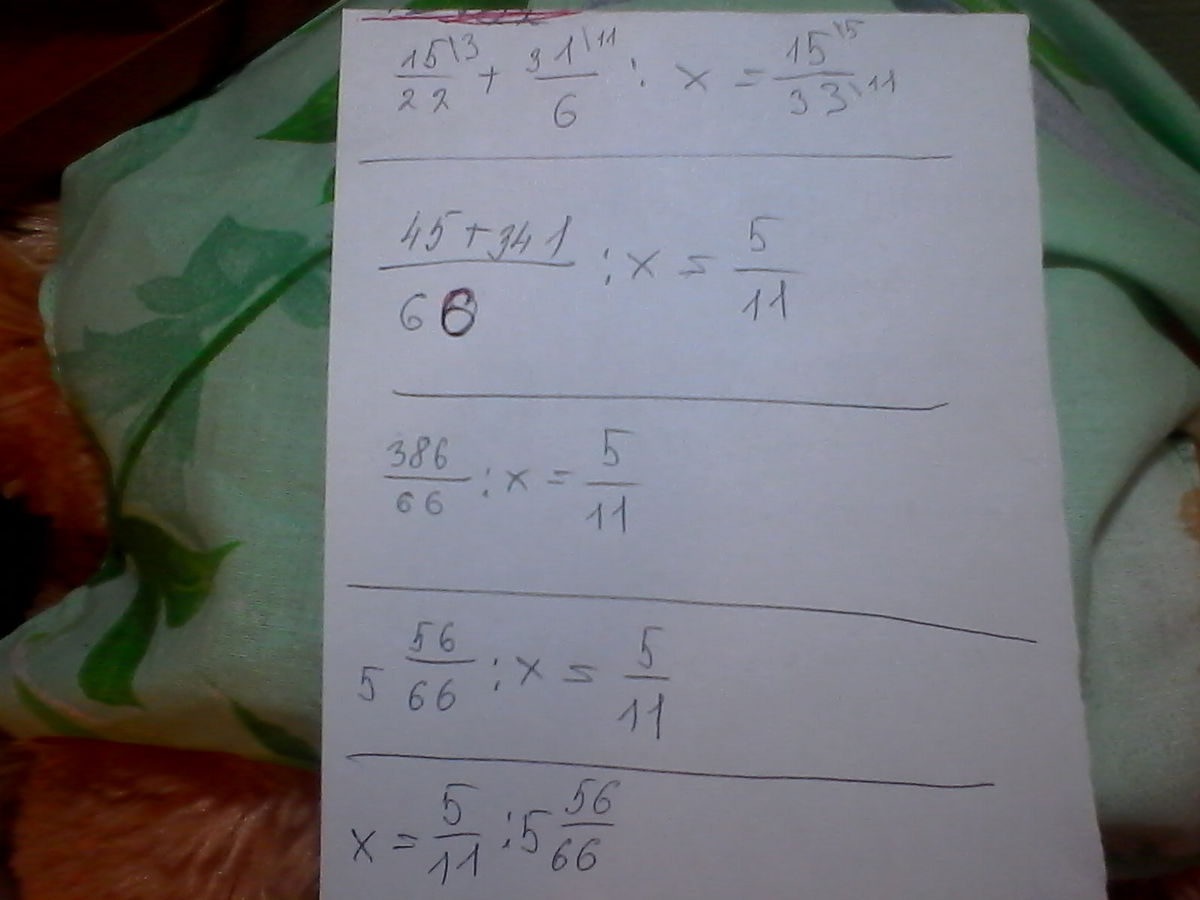 15\3/22 + 31\11/6 : x = 15\5/33\11
45+341/66 : x = 5/11
386/66 : x = 5/11
5 56/66 : x = 5/11
x = 5/11 : 5 56/66